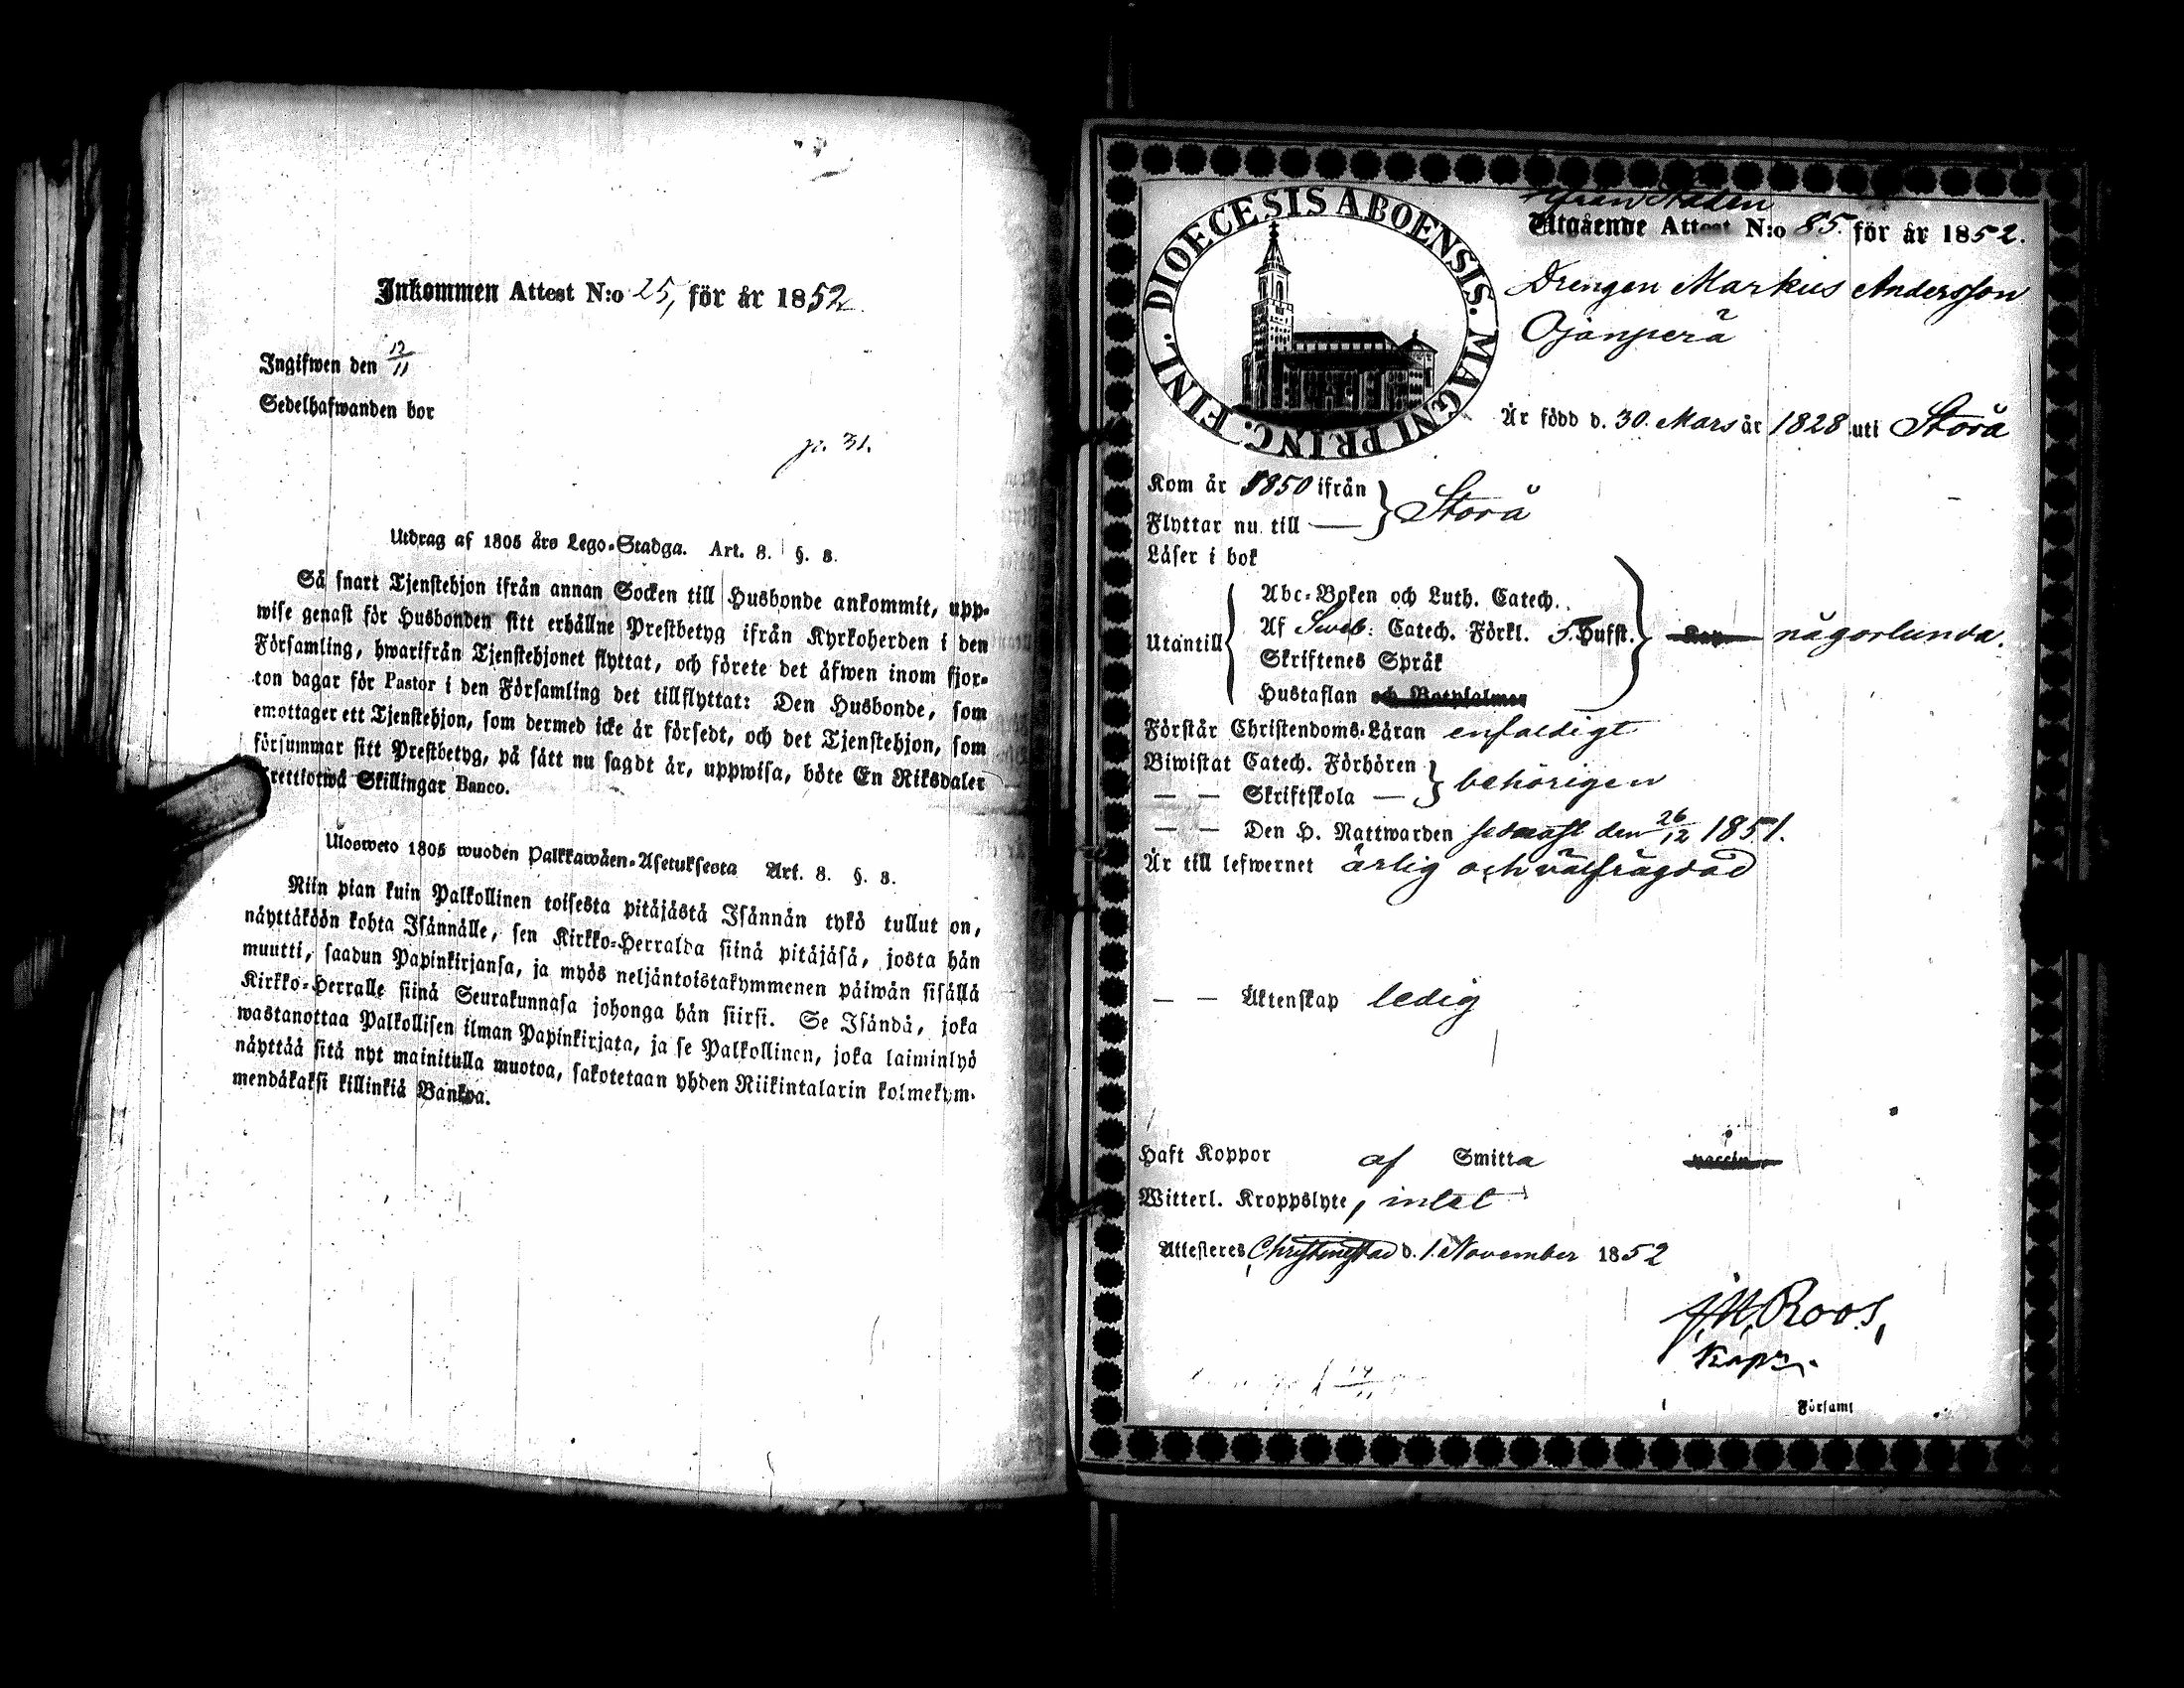 Inkommen Attest N:o 25, för år 1852.
Ingifwen den 12/11
Sedelhafwanden bor
p. 31.
Utdrag af 1805 års Lego-Stadga. Art. 8. §. 8.
Så snart Tjenstehjon ifrån annan Socken till Husbonde ankommit, upp-
wise genast för Husbonden sitt erhållne Prestbetyg ifrån Kyrkoherden i den
Församling, hwarifrån Tjenstehjonet flyttat, och förete det äfwen inom fjor-
ton dagar för Pastor i den Församling det tillflyttat: Den Husbonde, som
emottager ett Tjenstehjon, som dermed icke är försedt, och det Tjenstehjon, som
försummar sitt Prestbetyg, på sätt nu sagdt är, uppwisa, böte En Riksdaler
trettiotwå Skillingar Banco.
Ulosweto 1805 wuoden Palkkawäen-Asetuksesta Art. 8. §. 8.
Niin pian kuin Palkollinen toisesta pitäjästä Isännän tykö tullut on,
näyttäköön kohta Isännälle, sen Kirkko-Herralda siinä pitäjäsä, josta hän
muutti, saadun Papinkirjansa, ja myös neljäntoistakymmenen päiwän sisällä
Kirkko-Herralle siinä Seurakunnasa johonga hän siirsi. Se Isändä, joka
wastanottaa Palkollisen ilman Papinkirjata, ja se Palkollinen, joka laiminlyö
näyttää sitä nyt mainitulla muotoa, sakotetaan yhden Riikintalarin kolmekym-
mendäkaksi killinkiä Bankoa.
DIOECESIS ABOENSIS. MAGNI PRINC. FINL.
från Staden
Utgående Attest N:o 85. för år 1852.
Drengen Markus Andersson
Ojanperä
Är född d. 30. Mars år 1828 uti Storå
Kom år 1850 ifrån
Flyttar nu till — Storå
Läser i bok
Abc-Boken och Luth. Catech.
Utantill Af Sweb: Catech. Förkl. 5. Hufst. någorlunda.
Skriftenes Språk
Hustaflan och Botpsalmer
Förstår Christendoms-Läran enfaldigt
Biwistat Catech. Förhören
— — Skriftskola — behörigen
— — Den H. Nattwarden sednast den 26/12 1851.
Är till lefwernet ärlig och välfrägdad
— — Äktenskap ledig
Haft Koppor af Smitta vaccin
Witterl. Kroppslyte, intet
Attesteres Christinestad d. 1. November 1852
J.W. Roos,
Kapn.
Församl